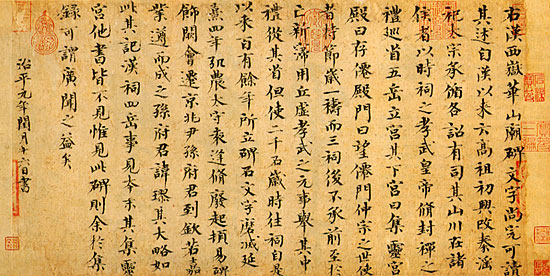 右漢西嶽華山廟碑文字尚完可讀
其述自漢以來云高祖初興改秦淫
祀太宗承循各詔有司其山川在諸
侯者以時祠之孝武皇帝脩封禪之
禮巡省五岳立宮其下宮曰集靈宮
殿曰存僊殿門曰望僊門仲宗之世使
者持節歲一禱而三祠後不承前至于
亡新寖用丘虛孝武之元事舉其中
禮從其省但使二千石歲時往祠自是
以來百有餘年所立碑石文字磨滅延
熹四年弘農太守袁逢脩廢起頓易碑
飾闕會遷京兆尹孫府君到欽若嘉
業遵而成之孫府君諱璆其大略如
此其記漢祠四岳事見本末其集靈
宮他書皆不見惟見此碑則余於集
錄可謂廣聞之益矣
治平元年閏月十六日書